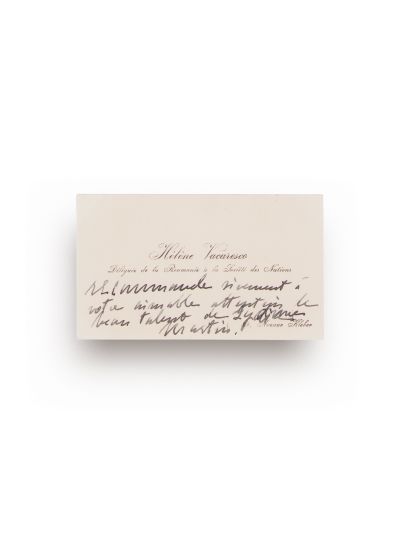 Hélène Vacaresco
Déléguée de la Roumanie à la Société des Nations
recommande vivement à
votre aimable attention le
beau talent de
Avenue Kléber
Martin.